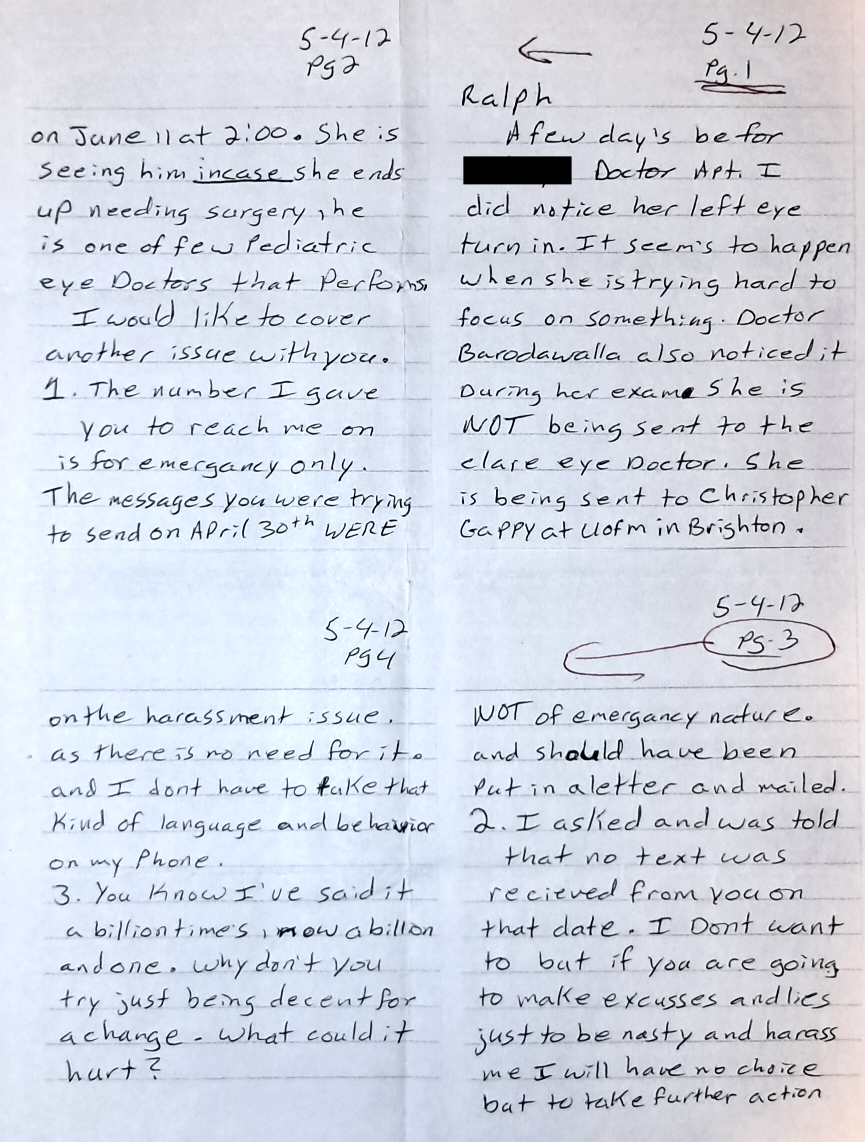 5-4-12
Pg.1
Ralph
A few day's be for
Doctor Apt. I
did notice her left eye
turn in. It seem's to happen
when she is trying hard to
focus on something. Doctor
Barodawalla also noticed it
During her exam. She is
NOT being sent to the
clare eye Doctor. She
is being sent to Christopher
Gappy at UofM in Brighton.
5-4-12
Pg2
on June 11 at 2:00. She is
seeing him incase she ends
up needing surgery, he
is one of few Pediatric
eye Doctors that Performs.
I would like to cover
another issue with you.
1. The number I gave
you to reach me on
is for emergancy only.
The messages you were trying
to send on April 30th WERE
5-4-12
Pg.3
NOT of emergancy nature.
and should have been
Put in a letter and mailed.
2. I asked and was told
that no text was
recieved from you on
that date. I Dont want
to but if you are going
to make excusses and lies
just to be nasty and harass
me I will have no choice
but to take further action
5-4-12
Pg4
on the harassment issue.
as there is no need for it.
and I dont have to take that
kind of language and behavior
on my Phone.
3. You Know I've said it
a billion time's, now a billon
and one. Why don't you
try just being decent for
a change. What could it
hurt?